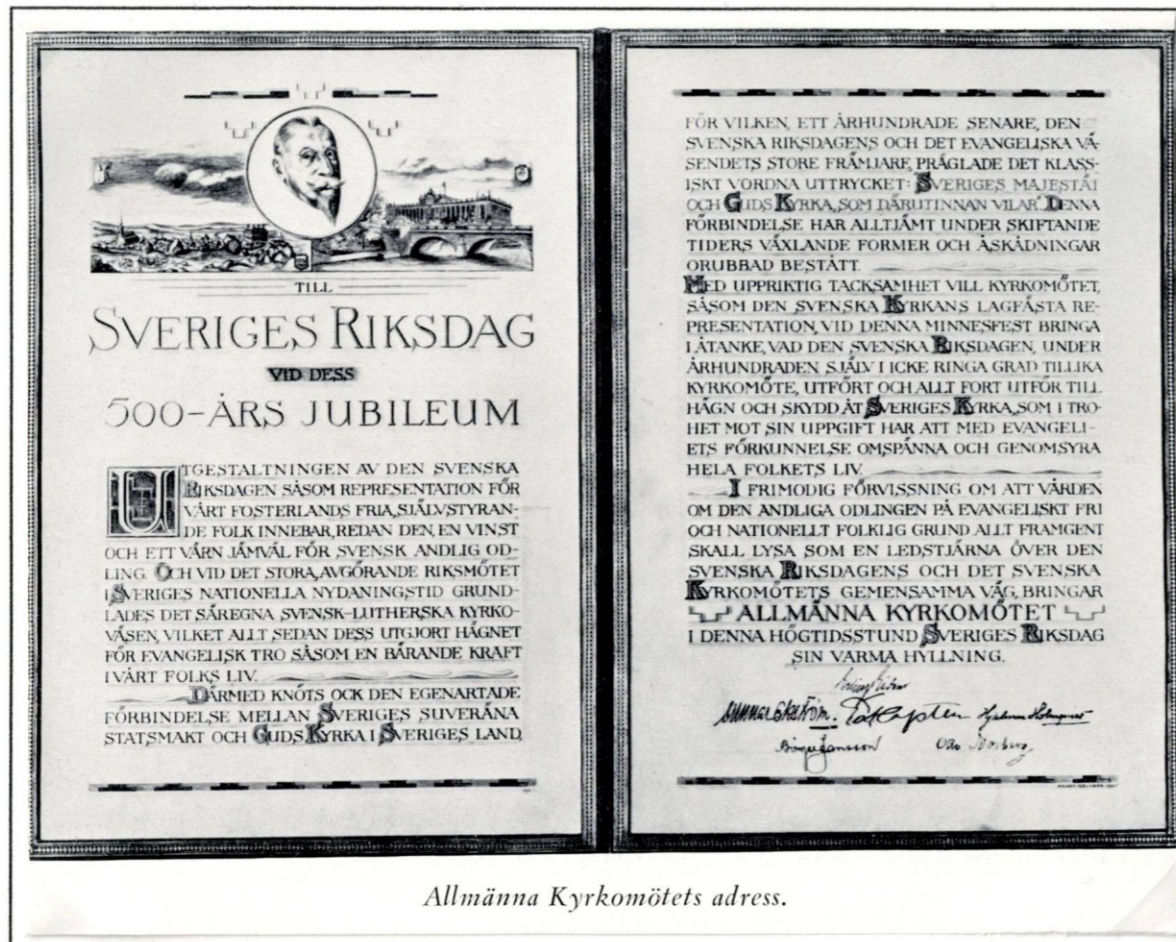 TILL
SVERIGES RIKSDAG
VID DESS
500-ÅRS JUBILEUM
UTGESTALTNINGEN AV DEN SVENSKA
RIKSDAGEN SÅSOM REPRESENTATION FÖR
VÅRT FOSTERLANDS FRIA, SJÄLVSTYRAN-
DE FOLK INNEBAR, REDAN DEN, EN VINST
OCH ETT VÄRN JÄMVÄL FÖR SVENSK ANDLIG OD-
LING. OCH VID DET STORA, AVGÖRANDE RIKSMÖTET
I SVERIGES NATIONELLA NYDANINGSTID GRUND-
LADES DET SÄREGNA, SVENSK-LUTHERSKA KYRKO-
VÄSEN, VILKET ALLT SEDAN DESS UTGJORT HÄGNET
FÖR EVANGELISK TRO SÅSOM EN BÄRANDE KRAFT
I VÅRT FOLKS LIV.
DÄRMED KNÖTS OCK DEN EGENARTADE
FÖRBINDELSE MELLAN SVERIGES SUVERÄNA
STATSMAKT OCH GUDS KYRKA I SVERIGES LAND,
FÖR VILKEN, ETT ÅRHUNDRADE SENARE, DEN
SVENSKA RIKSDAGENS OCH DET EVANGELISKA VÄ-
SENDETS STORE FRÄMJARE, PRÄGLADE DET KLASS-
ISKT VORDNA UTTRYCKET: SVERIGES MAJESTÄT
OCH GUDS KYRKA, SOM DÄRUTINNAN VILAR. DENNA
FÖRBINDELSE HAR ALLTJÄMT UNDER SKIFTANDE
TIDERS VÄXLANDE FORMER OCH ÅSKÅDNINGAR
ORUBBAD BESTÅTT.
MED UPPRIKTIG TACKSAMHET VILL KYRKOMÖTET,
SÅSOM DEN SVENSKA KYRKANS LAGFÄSTA RE-
PRESENTATION, VID DENNA MINNESFEST BRINGA
I ÅTANKE, VAD DEN SVENSKA RIKSDAGEN, UNDER
ÅRHUNDRADEN SJÄLV I ICKE RINGA GRAD TILLIKA
KYRKOMÖTE, UTFÖRT OCH ALLT FORT UTFÖR TILL
HÄGN OCH SKYDD ÅT SVERIGES KYRKA, SOM I TRO-
HET MOT SIN UPPGIFT HAR ATT MED EVANGELI-
ETS FÖRKUNNELSE OMSPÄNNA OCH GENOMSYRA
HELA FOLKETS LIV.
I FRIMODIG FÖRVISSNING OM ATT VÅRDEN
OM DEN ANDLIGA ODLINGEN PÅ EVANGELISKT FRI
OCH NATIONELLT FOLKLIG GRUND ALLT FRAMGENT
SKALL LYSA SOM EN LEDSTJÄRNA ÖVER DEN
SVENSKA RIKSDAGENS OCH DET SVENSKA
KYRKOMÖTETS GEMENSAMMA VÄG, BRINGAR
ALLMÄNNA KYRKOMÖTET
I DENNA HÖGTIDSSTUND SVERIGES RIKSDAG
SIN VARMA HYLLNING.
Erling Eidem
Gunnar Ekström. Hjalmar Holmquist
Otto Norberg
Allmänna Kyrkomötets adress.